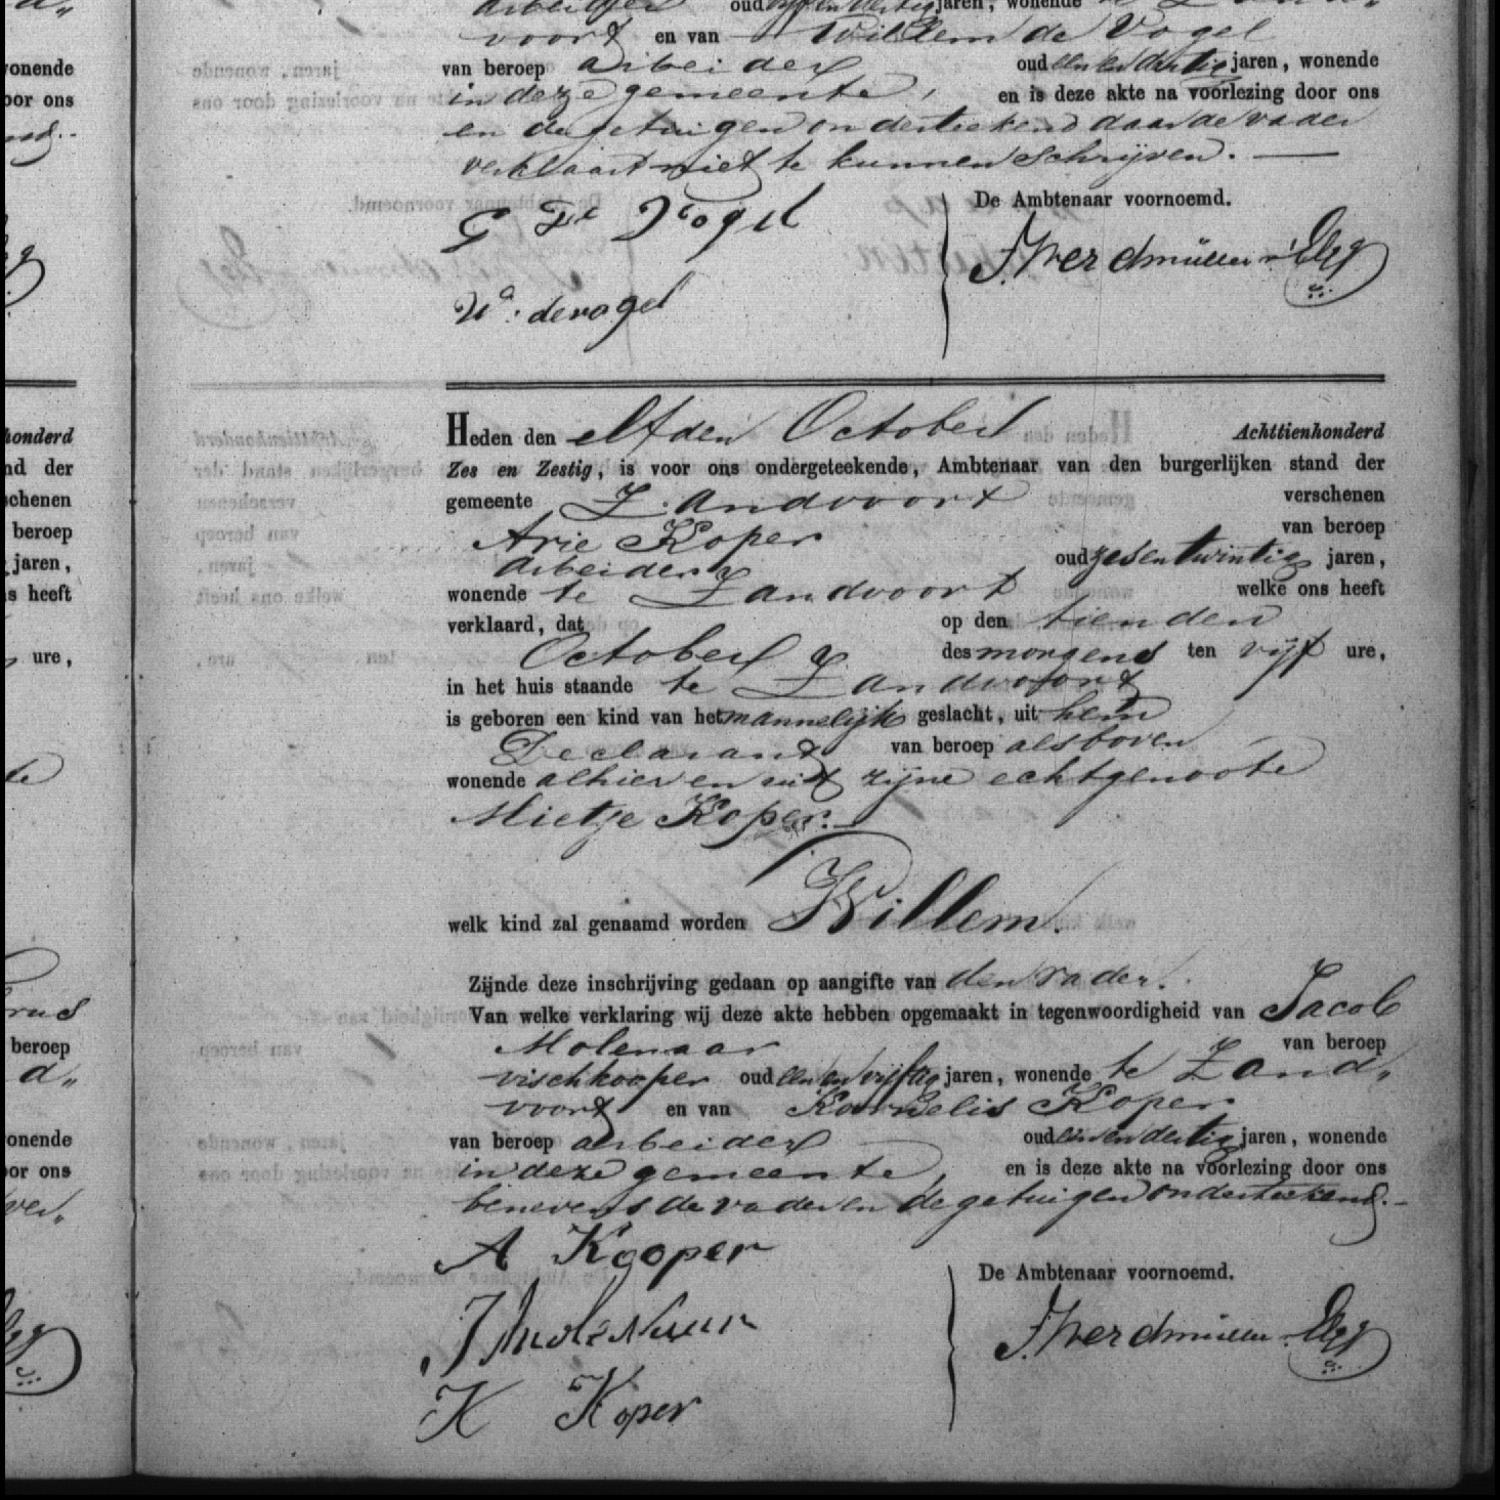 voort en van Willem de Vogel
van beroep arbeider oud een en dertig jaren, wonende
in deze gemeente, en is deze akte na voorlezing door ons
en de getuigen onderteekend daar de vader
verklaart niet te kunnen schrijven.
De Ambtenaar voornoemd.
G De Vogel
Wm. de vogel
Heden den elfden October Achttienhonderd
Zes en Zestig, is voor ons ondergeteekende, Ambtenaar van den burgerlijken stand der
gemeente Zandvoort verschenen
Arie Koper van beroep
arbeider oud zesentwintig jaren,
wonende te Zandvoort welke ons heeft
verklaard, dat op den tienden
October des morgens ten vijf ure,
in het huis staande te Zandvoort
is geboren een kind van het mannelijk geslacht, uit hem
Declarant van beroep als boven
wonende alhier en uit zijne echtgenoote
Mietje Koper.
welk kind zal genaamd worden Willem.
Zijnde deze inschrijving gedaan op aangifte van den vader.
Van welke verklaring wij deze akte hebben opgemaakt in tegenwoordigheid van Jacob
Molenaar van beroep
vischkooper oud een en vijftig jaren, wonende te Zand„
voort en van Kornelis Koper
van beroep arbeider oud een en dertig jaren, wonende
in deze gemeente, en is deze akte na voorlezing door ons
benevens de vader en de getuigen onderteekend.
A Kooper
De Ambtenaar voornoemd.
J Molenaar
K Koper